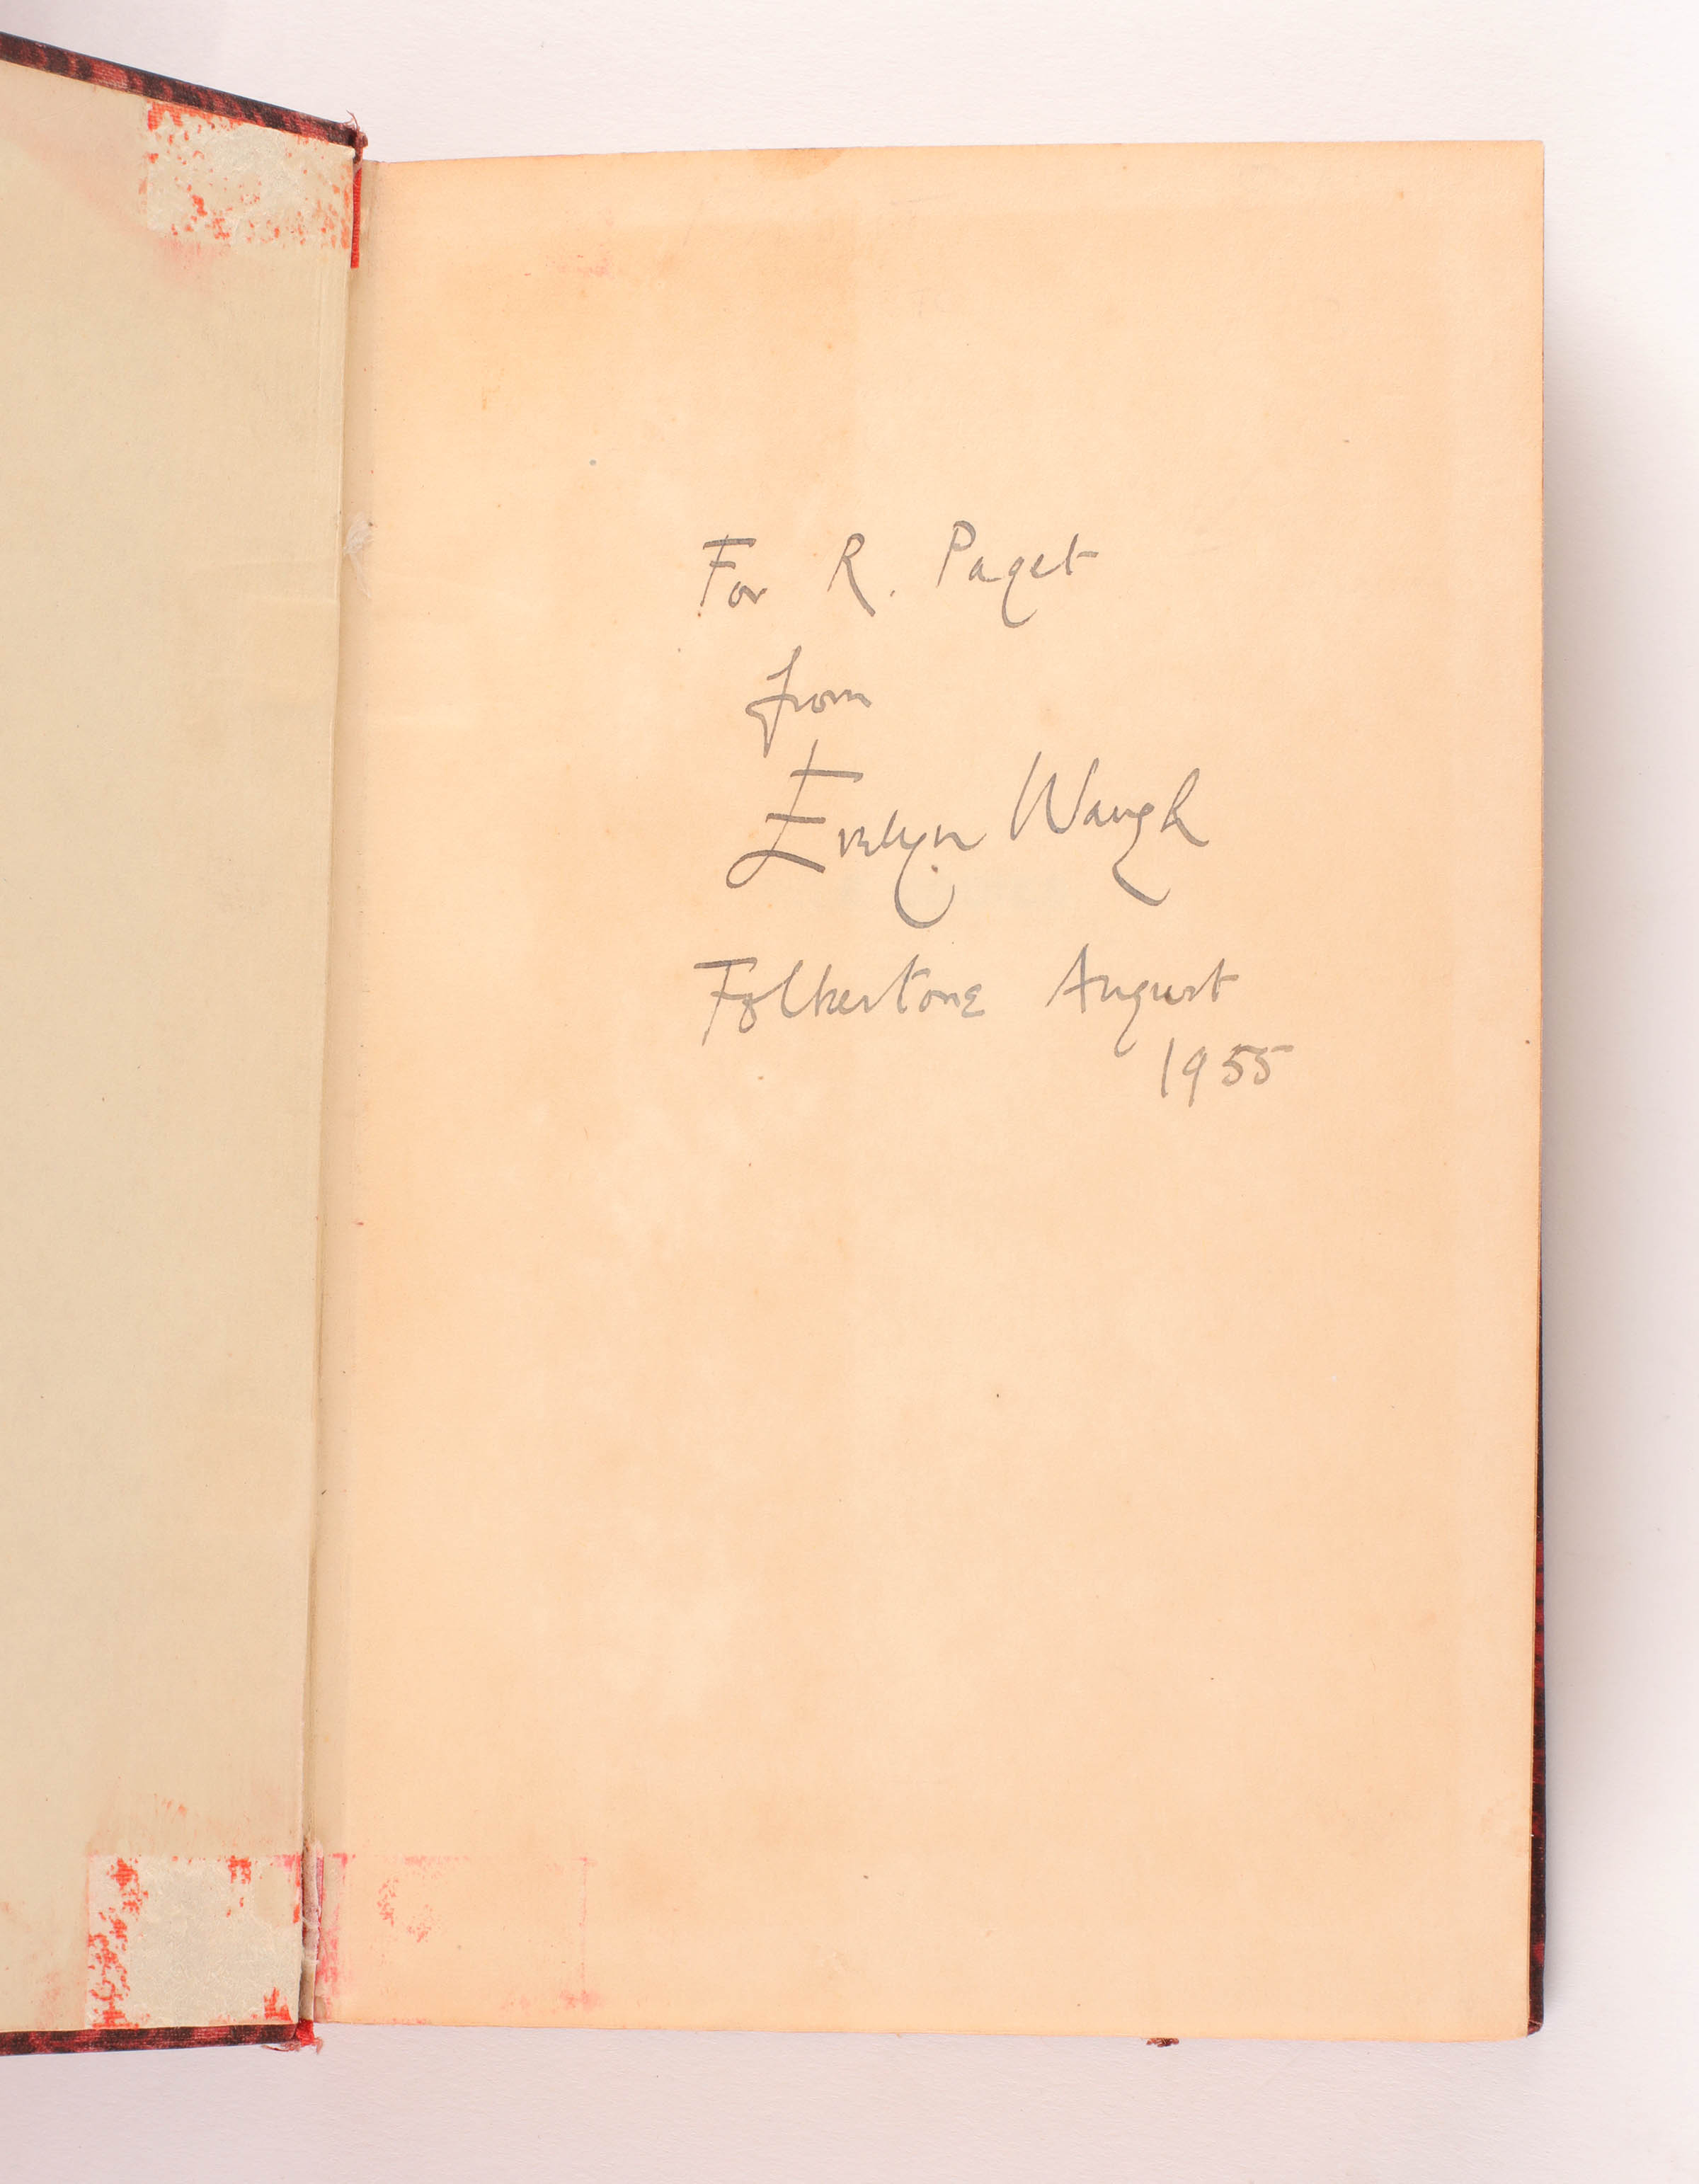 For R. Paget
from
Evelyn Waugh
Folkestone August
1955